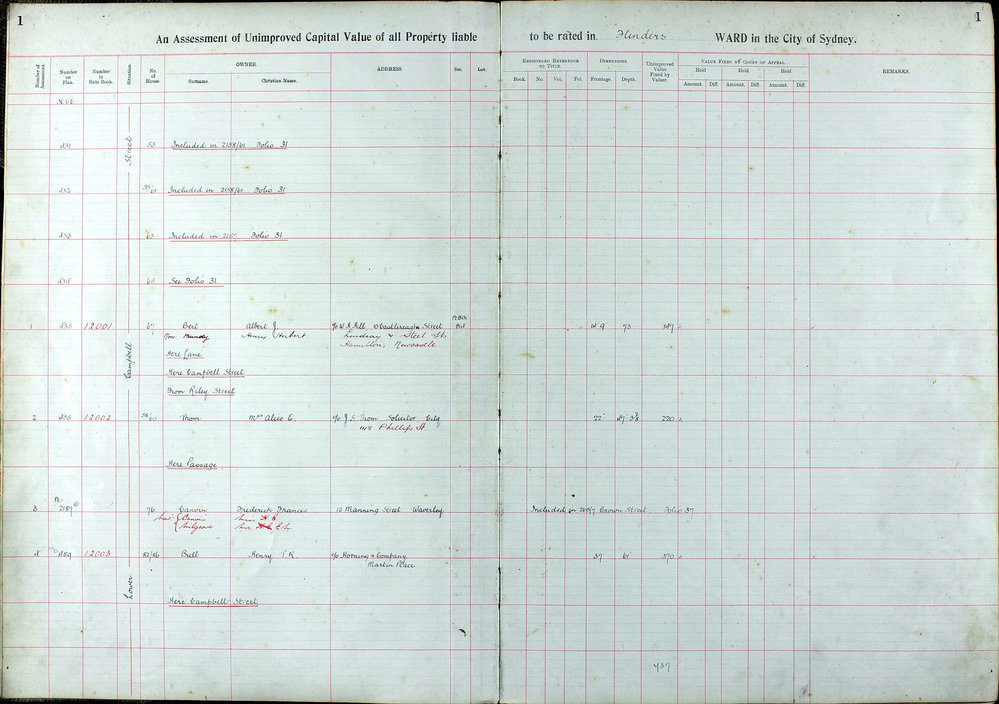 1
1
An Assessment of Unimproved Capital Value of all Property liable to be rated in Flinders WARD in the City of Sydney.
Number of Assessment.
Number on Plan.
Number in Rate Book.
Situation.
No. of House.
OWNER.
Surname.
Christian Name.
ADDRESS.
Sec.
Lot.
REGISTERED REFERENCE TO TITLE.
Book. No. Vol. Fol.
DIMENSIONS.
Frontage. Depth.
Unimproved Value Fixed by Valuer.
VALUE FIXED BY COURT OF APPEAL.
Held Held Held
Amount. Diff. Amount. Diff. Amount. Diff.
REMARKS.
Lower Campbell Street
53 Included in 2158/61 Folio 31
55/61 Included in 2158/61 Folio 31
63 Included in Folio 31
65 See Folio 31
1 12001 67 Bert Albert J
Now Henry Herbert
c/o W. H. Hill Castlereagh Street
Lindsay & Steel St
Hamilton, Newcastle
73
Here Lane
Here Campbell Street
From Riley Street
2 12002 58/60 Thom Mrs Alice E. c/o J S Thom Solicitor City 22' 220
148 Phillip St
Here Passage
3 Pt 2187 76 Frederick Francis 12 Manning Street Waverley Included in Crown Street Folio 37
4 12003 82/86 Bull Henry T. R. c/o Horning & Company 37 61 370
Martin Place
Here Campbell Street